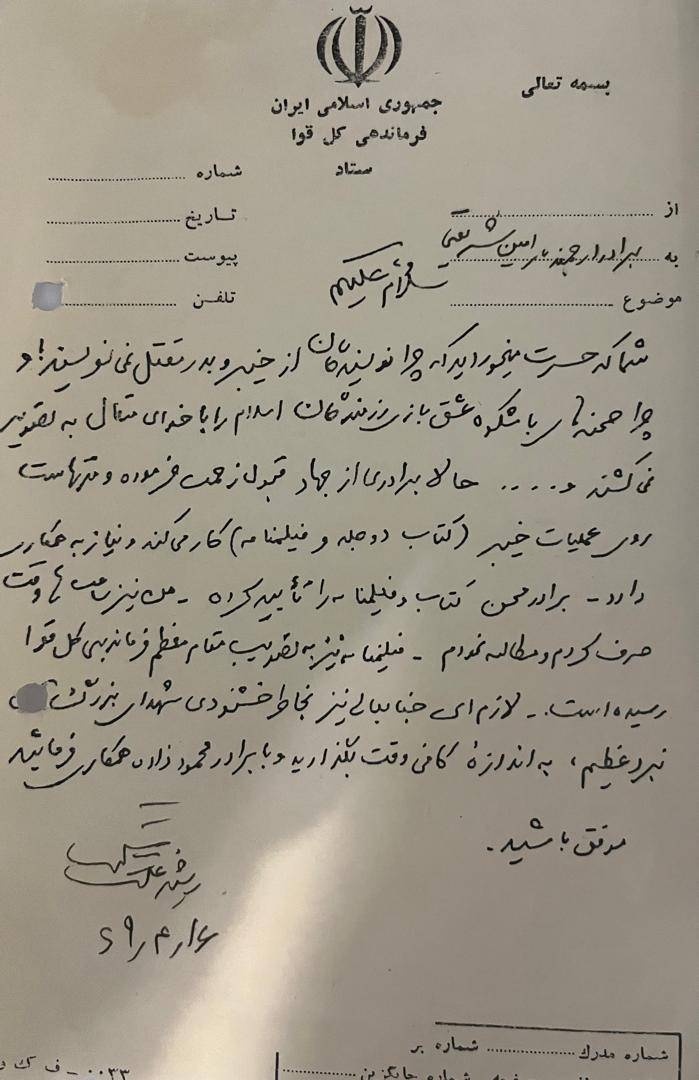 بسمه تعالی
جمهوری اسلامی ایران
فرماندهی کل قوا
ستاد
شماره
تاریخ
پیوست
تلفن
از
به برادر ارجمند امین شریعتی
موضوع
سلام علیکم
شما که حسرت میخورید که چرا نویسندگان از خیبر و بدر مقتل نمی نویسند! و
چرا صحنه های باشکوه عشق بازی رزمندگان اسلام را با خدای متعال به تصویر
نمی کشند و.... حالا برادری از جهاد قبول زحمت فرموده و مدتهاست
روی عملیات خیبر (کتاب دو جلد و فیلمنامه) کار می کند و نیاز به همکاری
دارد - برادر محسن کتاب و فیلمنامه را تأیید کرده - من نیز ساعت ها وقت
صرف کردم و مطالعه نمودم - فیلمنامه نیز به تصویب مقام معظم فرماندهی کل قوا
رسیده است. - لازم است جنابعالی نیز بخاطر خشنودی شهدای بزرگ
نبرد عظیم، به اندازهٔ کافی وقت بگذارید و با برادر محمودزاده همکاری فرمائید
موفق باشید.
۶۹
شماره مدرک شماره بر
شماره جایگزین
۰۰۳۳ - ف ک